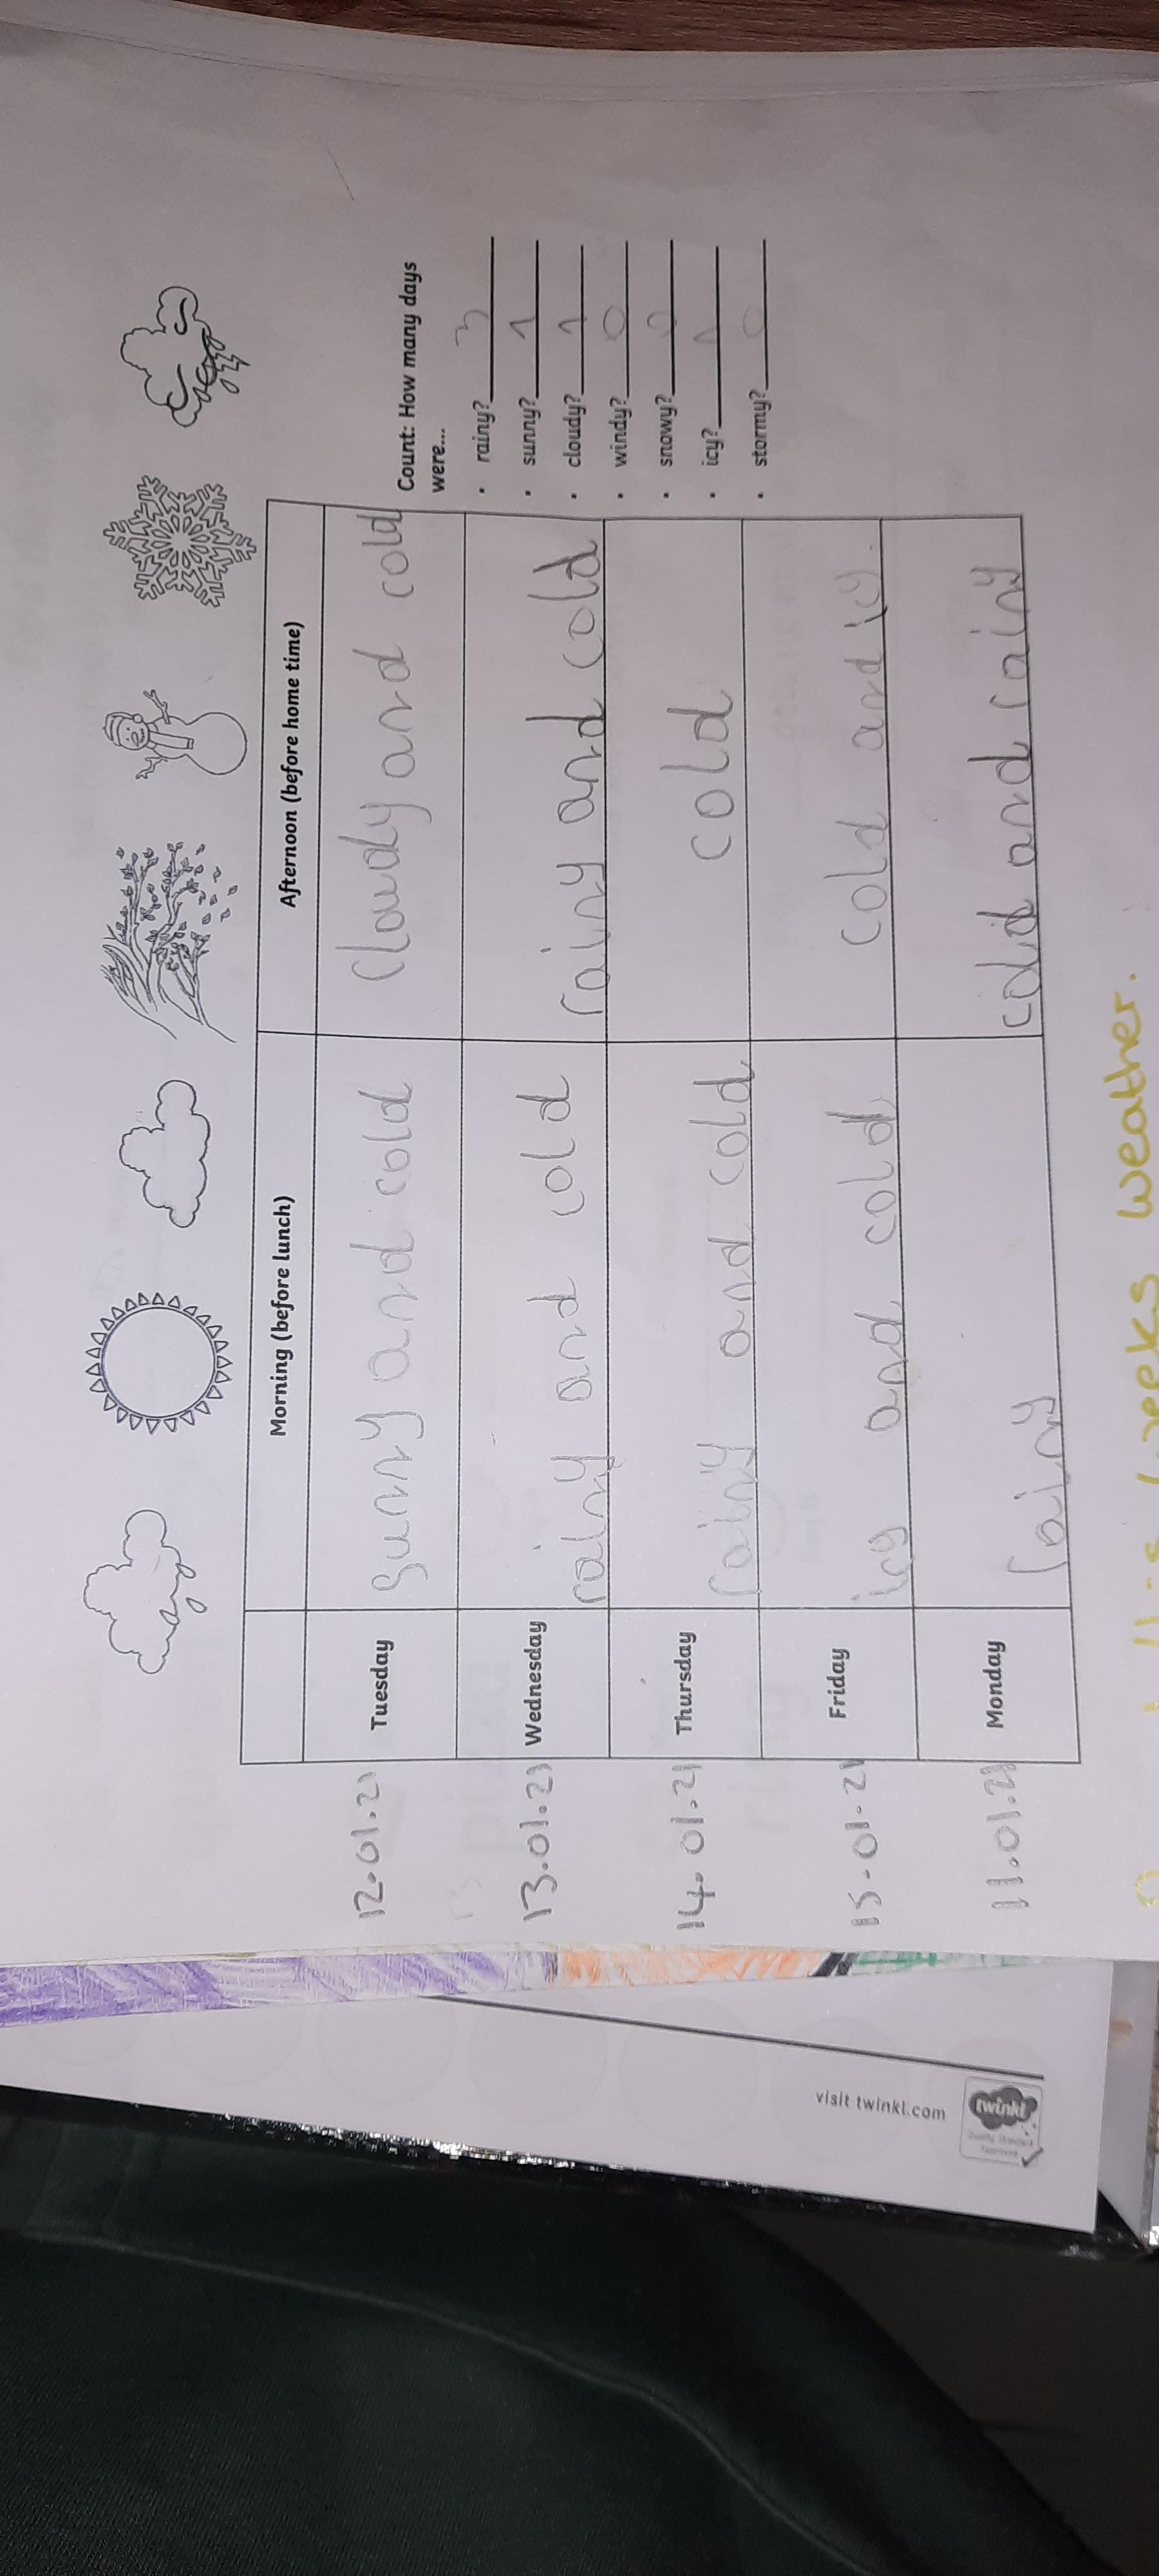 Morning (before lunch) Afternoon (before home time)
12.01.21 Tuesday sunny and cold cloudy and cold
13.01.21 Wednesday rainy and cold rainy and cold
14.01.21 Thursday rainy and cold cold
15.01.21 Friday icy and cold cold and icy.
11.01.21 Monday rainy cold and rainy
Count: How many days
were...
• rainy? 3
• sunny? 1
• cloudy? 1
• windy? 0
• snowy? 0
• icy? 1
• stormy? 0
weeks weather.
visit twinkl.com
twinkl
Quality Standard
Approved